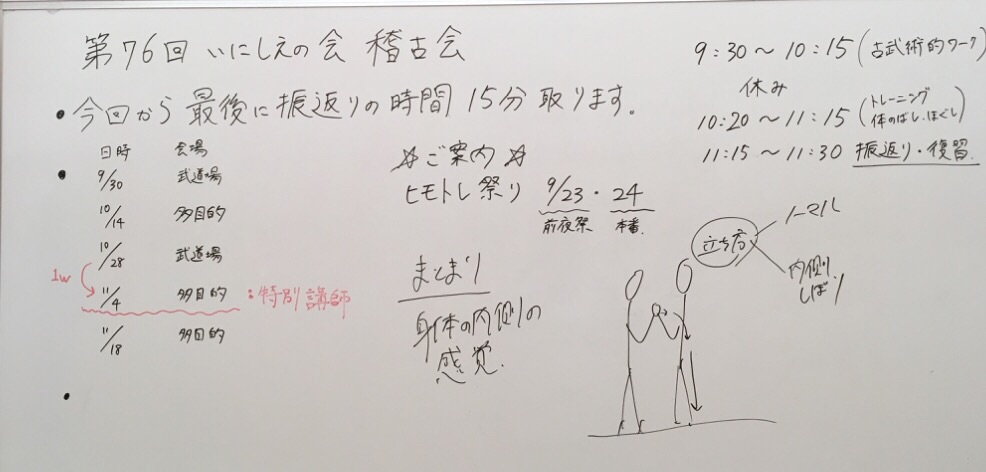 第76回 いにしえの会 稽古会
・今回から 最後に振返りの時間 15分 取ります。
日時 会場
・9/30 武道場
10/14 多目的
10/28 武道場
1w
11/4 多目的 : 特別講師
11/18 多目的
・
☆ご案内☆
ヒモトレ祭り 9/23・24
前夜祭 本番
まとまり
身体の内側の
感覚.
9:30〜10:15 (古武術的ワーク)
休み
10:20〜11:15 (トレーニング
体のばし・ほぐし)
11:15〜11:30 振返り・復習.
立ち方
ノーマル
内側り
しぼり